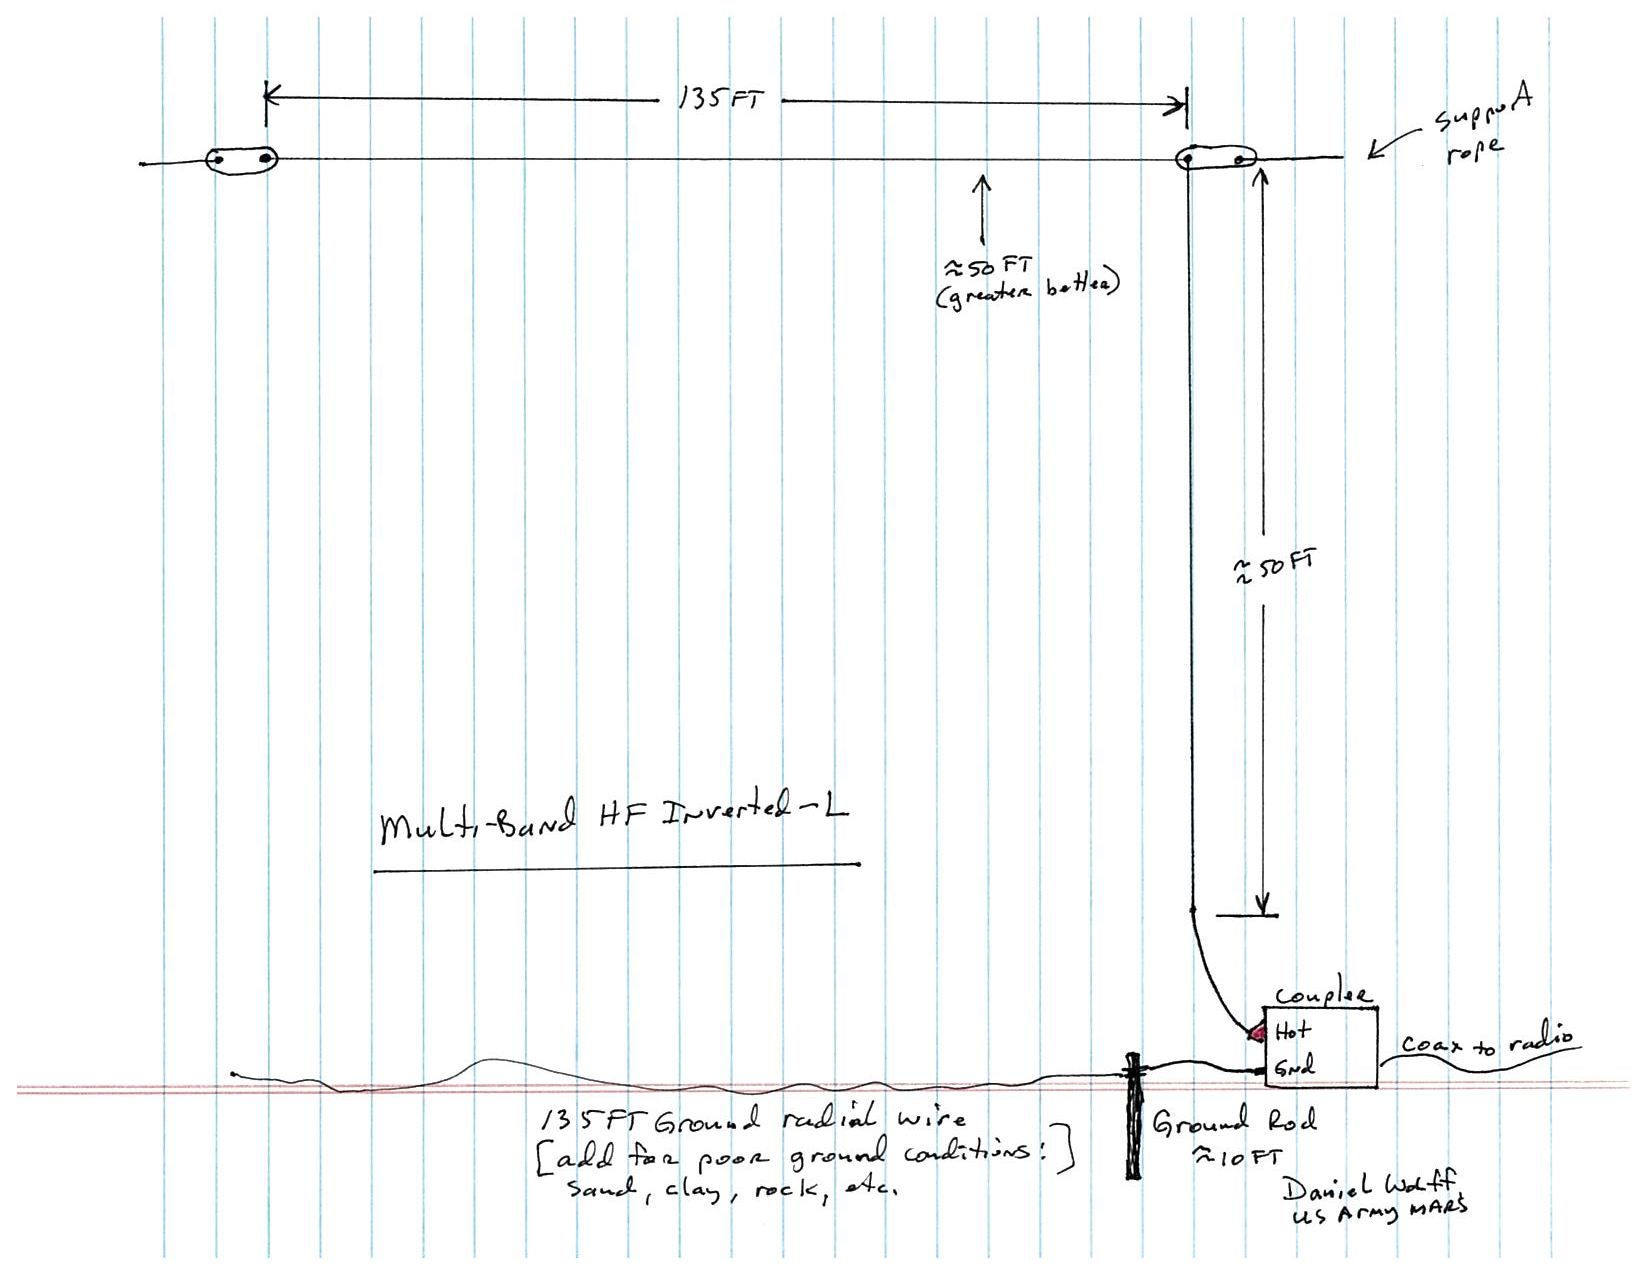 135FT
support
rope
≈50 FT
(greater better)
≈50FT
Multi-Band HF Inverted-L
Coupler
Hot
Gnd
coax to radio
135FT Ground radial wire
[add for poor ground conditions:]
sand, clay, rock, etc.
Ground Rod
≈10FT
Daniel Wolff
US Army MARS